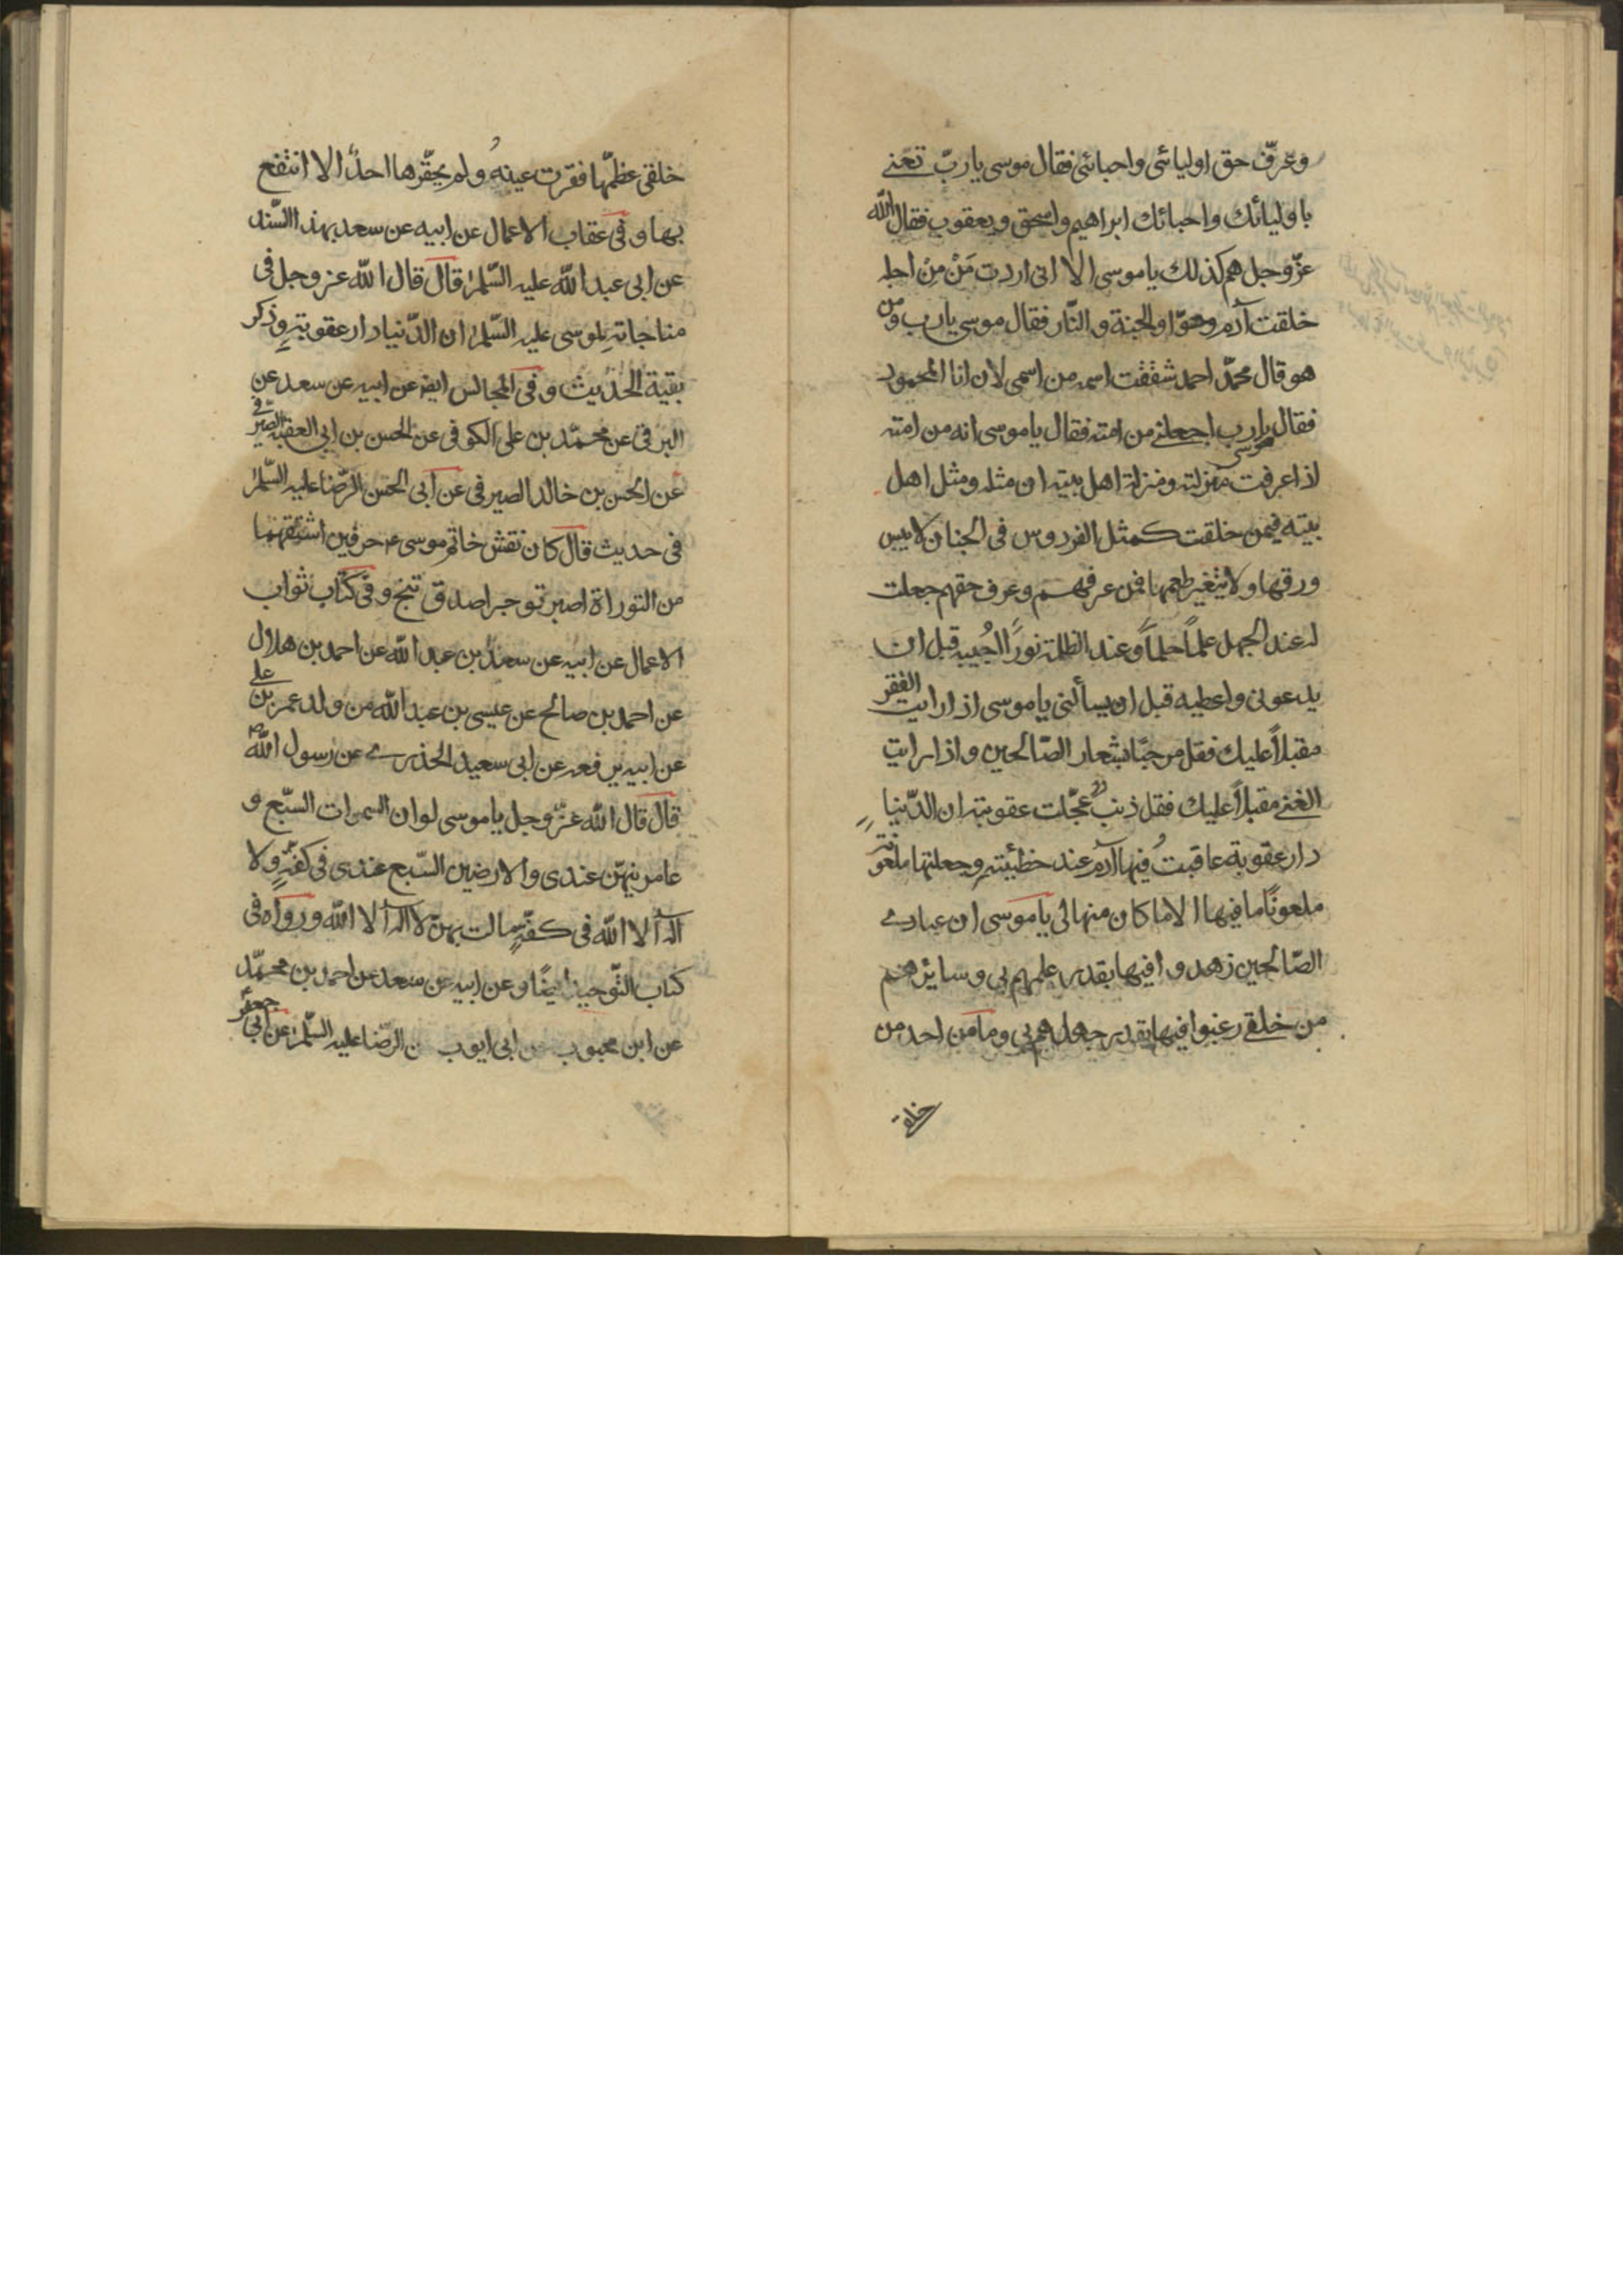 وعرّف حق اوليائى واحبائى فقال موسى يا ربّ تعنے
باوليائك واحبائك ابراهيم واسحق ويعقوب فقال الله
عزّوجل هم كذلك يا موسى الا انى اردت مَنْ مِنْ اجله
خلقت آدم وحوّا والجنة والنّار فقال موسى يا رب ومن
هو قال محمّد احمد شققت اسمه من اسمى لان انا المحمود
فقال موسى يا رب اجعلنے من امته فقال يا موسى انه من امته
اذا عرفت منزلته ومنزلة اهل بيته ان مثله ومثل اهل
بيته فيمن خلقت كمثل الفردوس فى الجنان لا ييبس
ورقها ولا يتغير طعمها فمن عرفهم وعرف حقهم جعلت
له عند الجهل علماً حلماً وعند الظلمة نوراً اُجيبه قبل ان
يدعونى واعطيه قبل ان يسألنى يا موسى اذا رايت الفقر
مقبلاً عليك فقل مرحبًا بشعار الصّالحين واذا رايت
الغنے مقبلاً عليك فقل ذنب عجّلت عقوبته ان الدّنيا
دار عقوبة عاقبتُ فيها آدم عند خطئيته وجعلتها ملعونة
ملعونًا ما فيها الا ما كان منها لى يا موسى ان عبادے
الصّالحين زهدوا فيها بقدر علمهم بى وسايرهم
من خلقے رغبوا فيها بقدر جهلهم بى وما من احد من
خلقے
خلقى عظّمها فقرت عينهُ ولم يحقّرها احدٌ الا انتفع
بها وفى عقاب الاعمال عن ابيه عن سعد بهذا السّند
عن ابى عبد الله عليه السّلم قال قال الله عز وجل فى
مناجاته لموسى عليه السّلم ان الدّنيا دار عقوبةٍ وذكر
بقية الحديث وفى المجالس ايضا عن ابيه عن سعد عن
البرقى عن محمّد بن على الكوفى عن الحسن بن ابى العقبه الصيرفى
عن الحسن بن خالد الصيرفى عن ابى الحسن الرّضا عليه السّلم
فى حديث قال كان نقش خاتم موسى ع حرفين اشتقهما
من التوراة اصبر توجر اصدق تنج وفى كتاب ثواب
الاعمال عن ابيه عن سعد بن عبد الله عن احمد بن هلال
عن احمد بن صالح عن عيسى بن عبد الله من ولد عمر بن على
عن ابيه يرفعه عن ابى سعيد الخدرے عن رسول الله ص
قال قال الله عزّوجل يا موسى لو ان السموات السّبع و
عامريهنّ عندى والارضين السّبع عندى فى كفةٍ ولا
اله الا الله فى كفّةٍ مالت بهنّ لا اله الا الله ورواه فى
كتاب التّوحيد ايضًا وعن ابيه عن سعد عن احمد بن محمّد
عن ابن محبوب عن ابى ايوب عن الرّضا عليه السّلم عن ابى جعفر